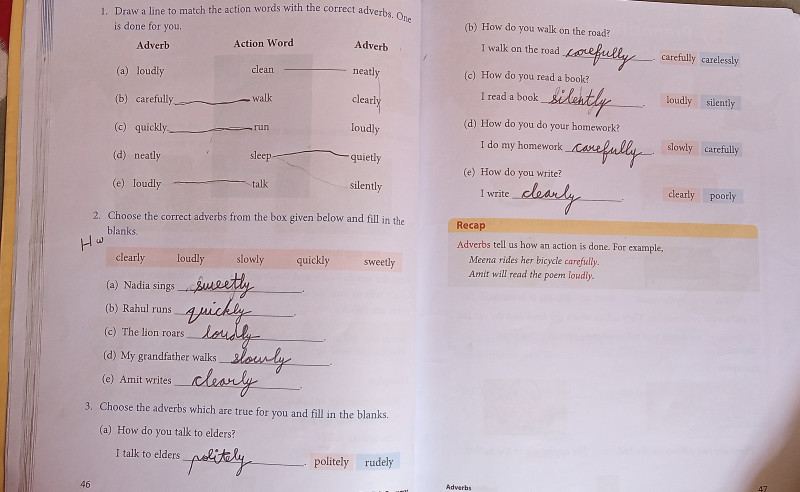 1. Draw a line to match the action words with the correct adverbs. One
is done for you.
Adverb Action Word Adverb
(a) loudly clean neatly
(b) carefully walk clearly
(c) quickly run loudly
(d) neatly sleep quietly
(e) loudly talk silently
2. Choose the correct adverbs from the box given below and fill in the
blanks.
HW
clearly loudly slowly quickly sweetly
(a) Nadia sings sweetly.
(b) Rahul runs quickly.
(c) The lion roars loudly.
(d) My grandfather walks slowly.
(e) Amit writes clearly.
3. Choose the adverbs which are true for you and fill in the blanks.
(a) How do you talk to elders?
I talk to elders politely. politely rudely
46
(b) How do you walk on the road?
I walk on the road carefully. carefully carelessly
(c) How do you read a book?
I read a book silently. loudly silently
(d) How do you do your homework?
I do my homework carefully. slowly carefully
(e) How do you write?
I write clearly. clearly poorly
Recap
Adverbs tell us how an action is done. For example,
Meena rides her bicycle carefully.
Amit will read the poem loudly.
Adverbs 47